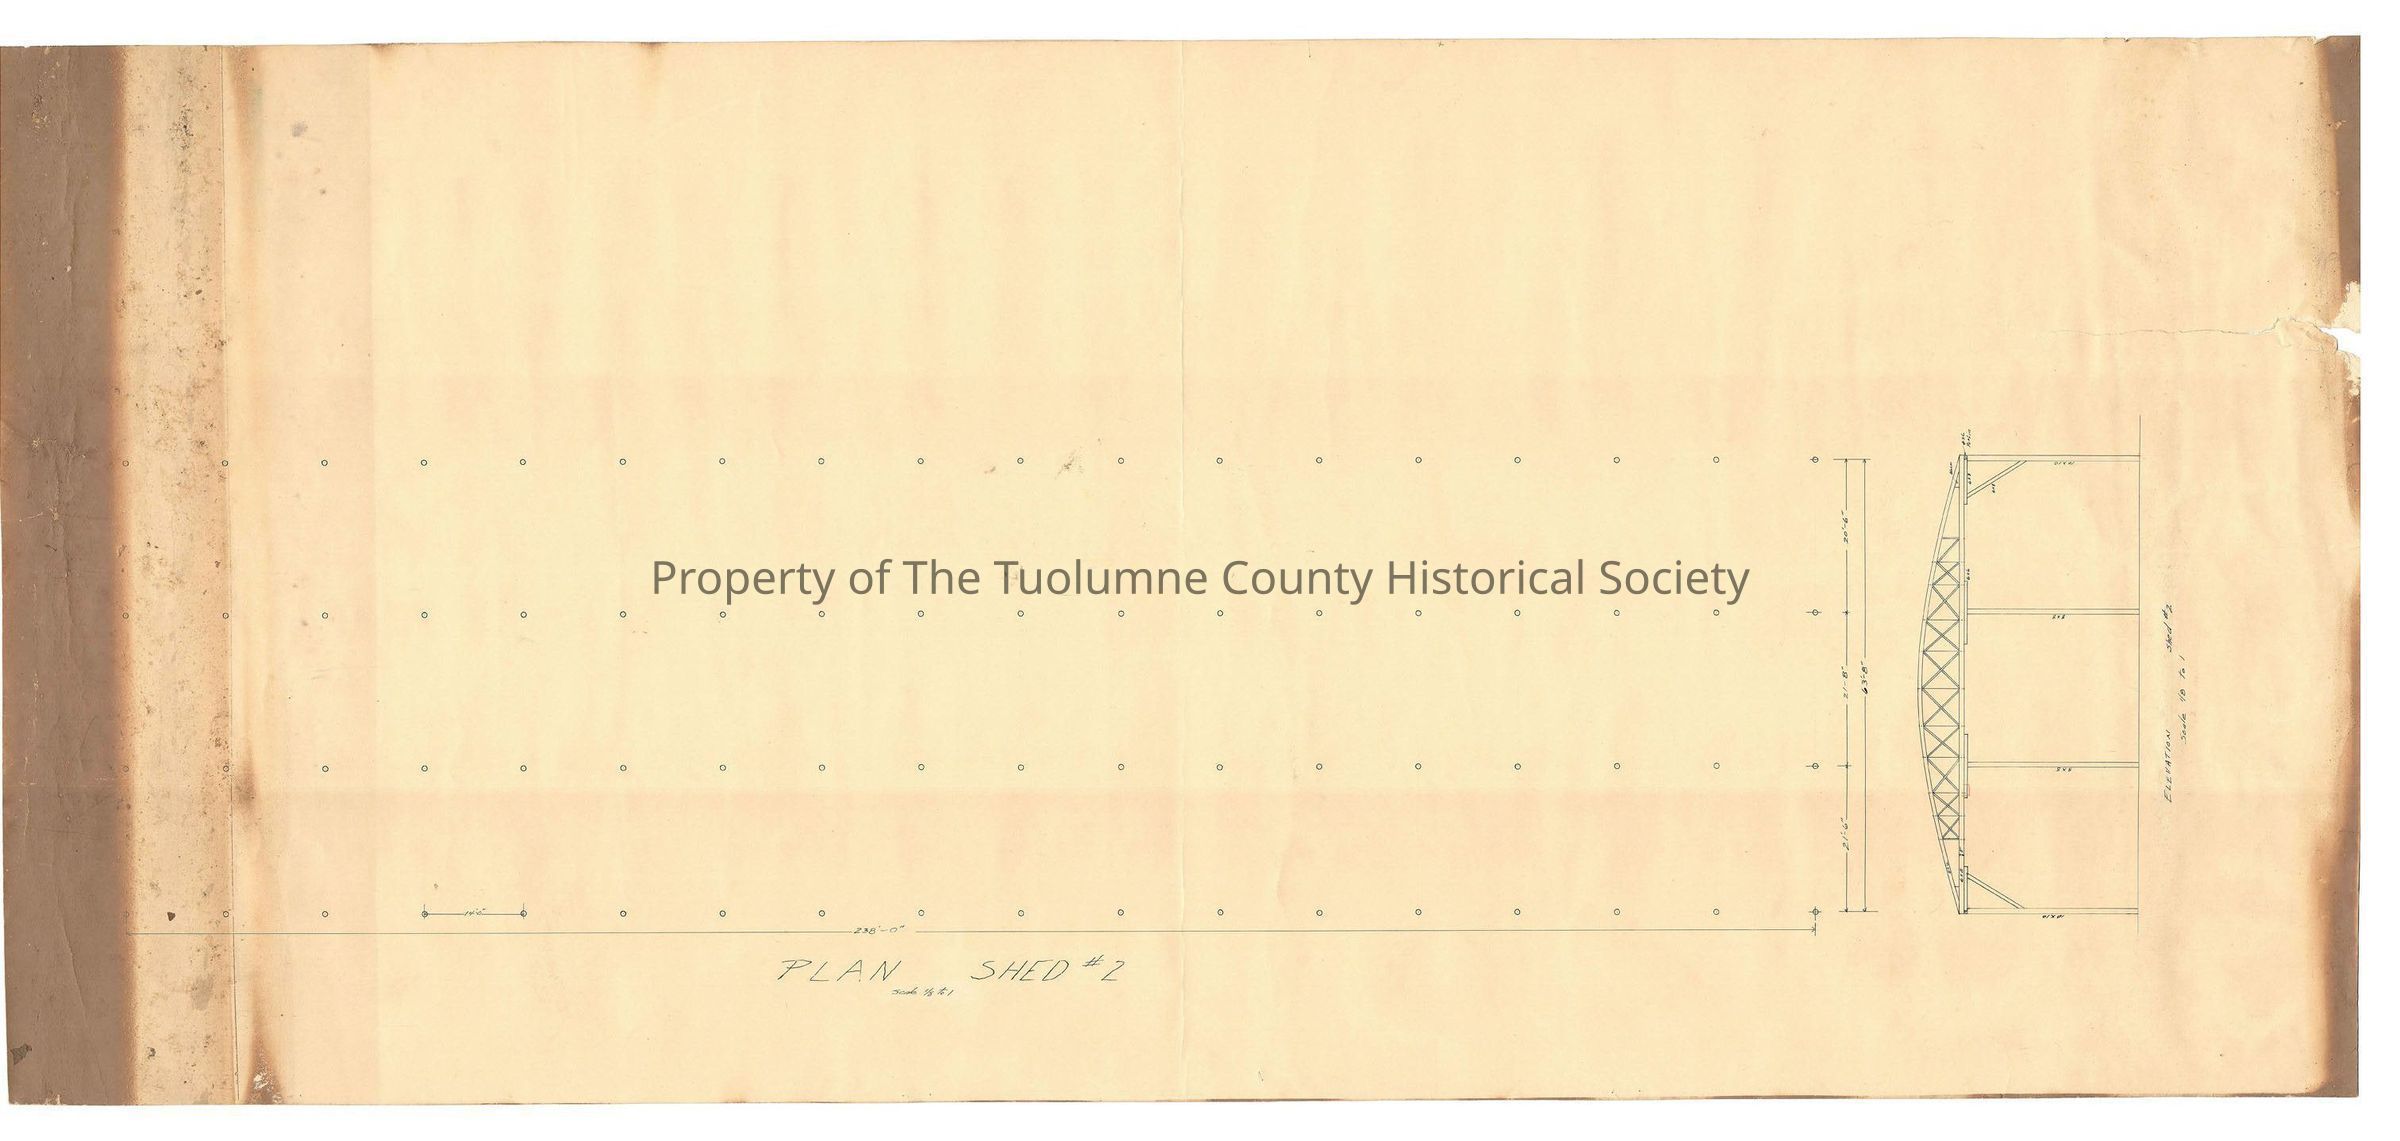 Property of The Tuolumne County Historical Society
20'-6"
21'-8"
63'-8"
21'-6"
14'-0"
238'-0"
PLAN SHED #2
Scale 1/8 to 1
10 X 10
8X8
8X8
10 X 10
ELEVATION Shed #2
Scale 1/8 to 1